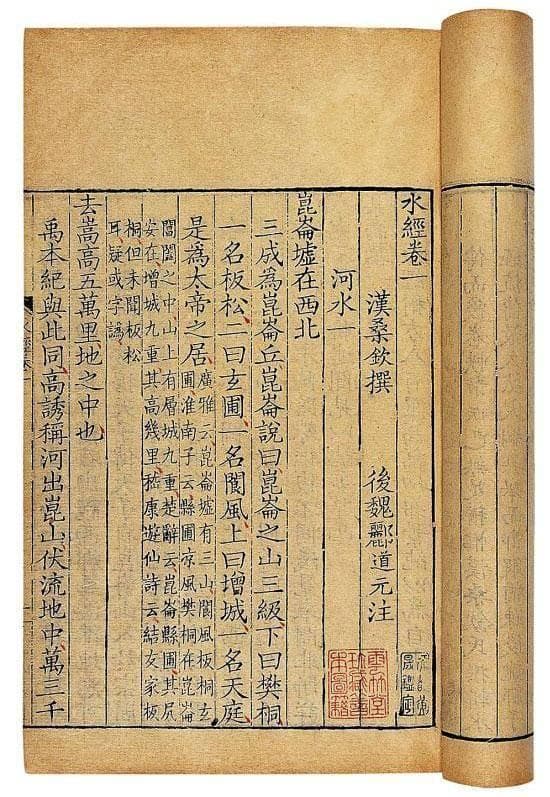 水經卷一
漢桑欽撰 後魏酈道元注
河水一
崑崙墟在西北
三成為崑崙丘崑崙說曰崑崙之山三級下曰樊桐
一名板松二曰玄圃一名閬風上曰增城一名天庭
是為太帝之居
廣雅云崑崙墟有三山閬風板桐玄
圃淮南子云縣圃涼風樊桐在崑崙
閶闔之中山上有層城九重楚辭云崑崙縣圃其尻
安在增城九重其高幾里嵇康遊仙詩云結女家板
桐但未聞板松
耳疑或字譌
去嵩高五萬里地之中也
禹本紀與此同高誘稱河出崑山伏流地中萬三千